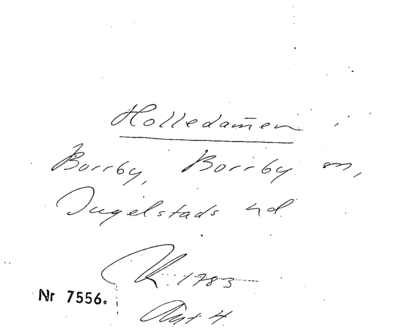 Holledamen i
Borrby, Borrby sn,
Ingelstads hd.
1983
Nr 7556.
Ant 4.